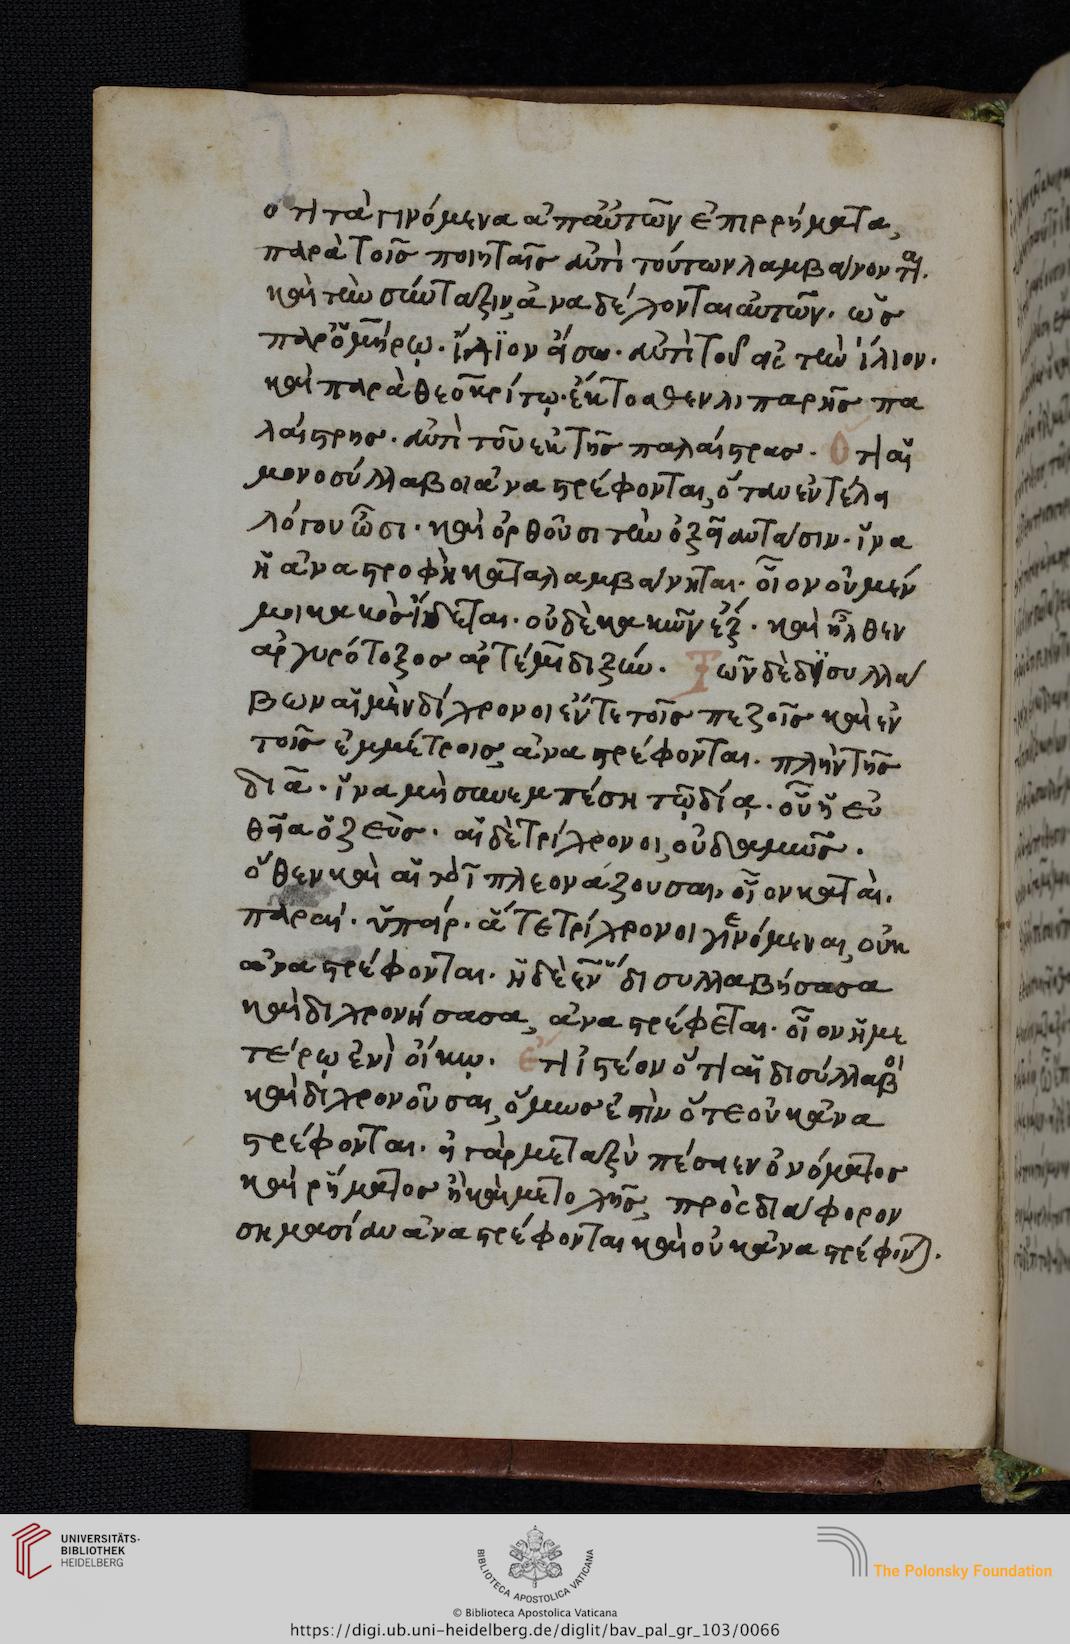 ὅτι τὰ γινόμενα ἀπ' αὐτῶν ἐπιρρήματα,
παρὰ τοῖς ποιηταῖς ἀντὶ τούτων λαμβάνονται.
καὶ τὴν σύνταξιν ἀναδέχονται αὐτῶν. ὡς
παρ' ὁμήρῳ. ἴλϊον εἴσω. ἀντὶ τοῦ εἰς τὴν ἴλιον.
καὶ παρὰ θεοκρίτῳ. ἔκτοσθεν λιπαρῆς πα
λαίστρης. ἀντὶ τοῦ ἐκ τῆς παλαίστρας. Ὅτι αἱ
μονοσύλλαβοι ἀναστρέφονται, ὅταν ἐν τέλει
λόγου ὦσι. καὶ ὀρθοῦσι τὴν ὀξεῖαν τάσιν. ἵνα
ἡ ἀναστροφὴ καταλαμβάνηται. οἷον οὐ μέν
μοι κακὸς εἴδεται. οὐδὲ κακῶν ἔξ. καὶ ἦλθεν
ἀργυρότοξος ἀρτέμιδι ξύν. Τῶν δὲ δϊσυλλά
βων αἱ μὲν δίχρονοι ἔν τε τοῖς πεζοῖς καὶ ἐν
τοῖς ἐμμέτροις, ἀναστρέφονται. πλὴν τῆς
διὰ. ἵνα μὴ συνεμπέση τῷ δία. οὗ ἡ εὐ
θεῖα ὁ ζεὺς. αἱ δὲ τρίχρονοι, οὐδαμῶς.
ὅθεν καὶ αἱ τὸ ῑ πλεονάζουσαι, οἷον καταὶ.
παραί. ὑπαίρ. ἅτε τρίχρονοι γινόμεναι, οὐκ
ἀναστρέφονται. ἡ δὲ ἐν δισυλλαβήσασα
καὶ διχρονήσασα, ἀναστρέφεται. οἷον ἡμε
τέρῳ ἐνὶ οἴκῳ. Ἔτι ἰστέον ὅτι αἱ δισύλλαβοι
καὶ διχρονοῦσαι, ὅμως ἐστὶν ὅτε οὐκ ἀνα
στρέφονται. ἡ γὰρ μεταξὺ πέσῃ ἐν ὀνόματος
καὶ ῥήματος ἢ καὶ μετοχῆς, πρὸς διάφορον
σημασίαν ἀναστρέφονται καὶ οὐκ ἀναστρέφονται.
UNIVERSITÄTS-
BIBLIOTHEK
HEIDELBERG
BIBLIOTECA APOSTOLICA VATICANA
The Polonsky Foundation
© Biblioteca Apostolica Vaticana
https://digi.ub.uni-heidelberg.de/diglit/bav_pal_gr_103/0066